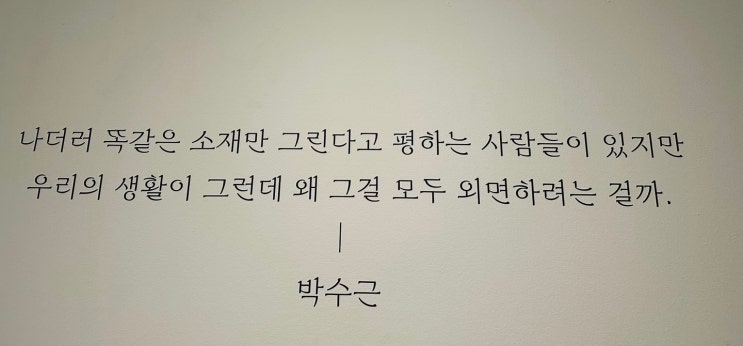 나더러 똑같은 소재만 그린다고 평하는 사람들이 있지만
우리의 생활이 그런데 왜 그걸 모두 외면하려는 걸까.
박수근